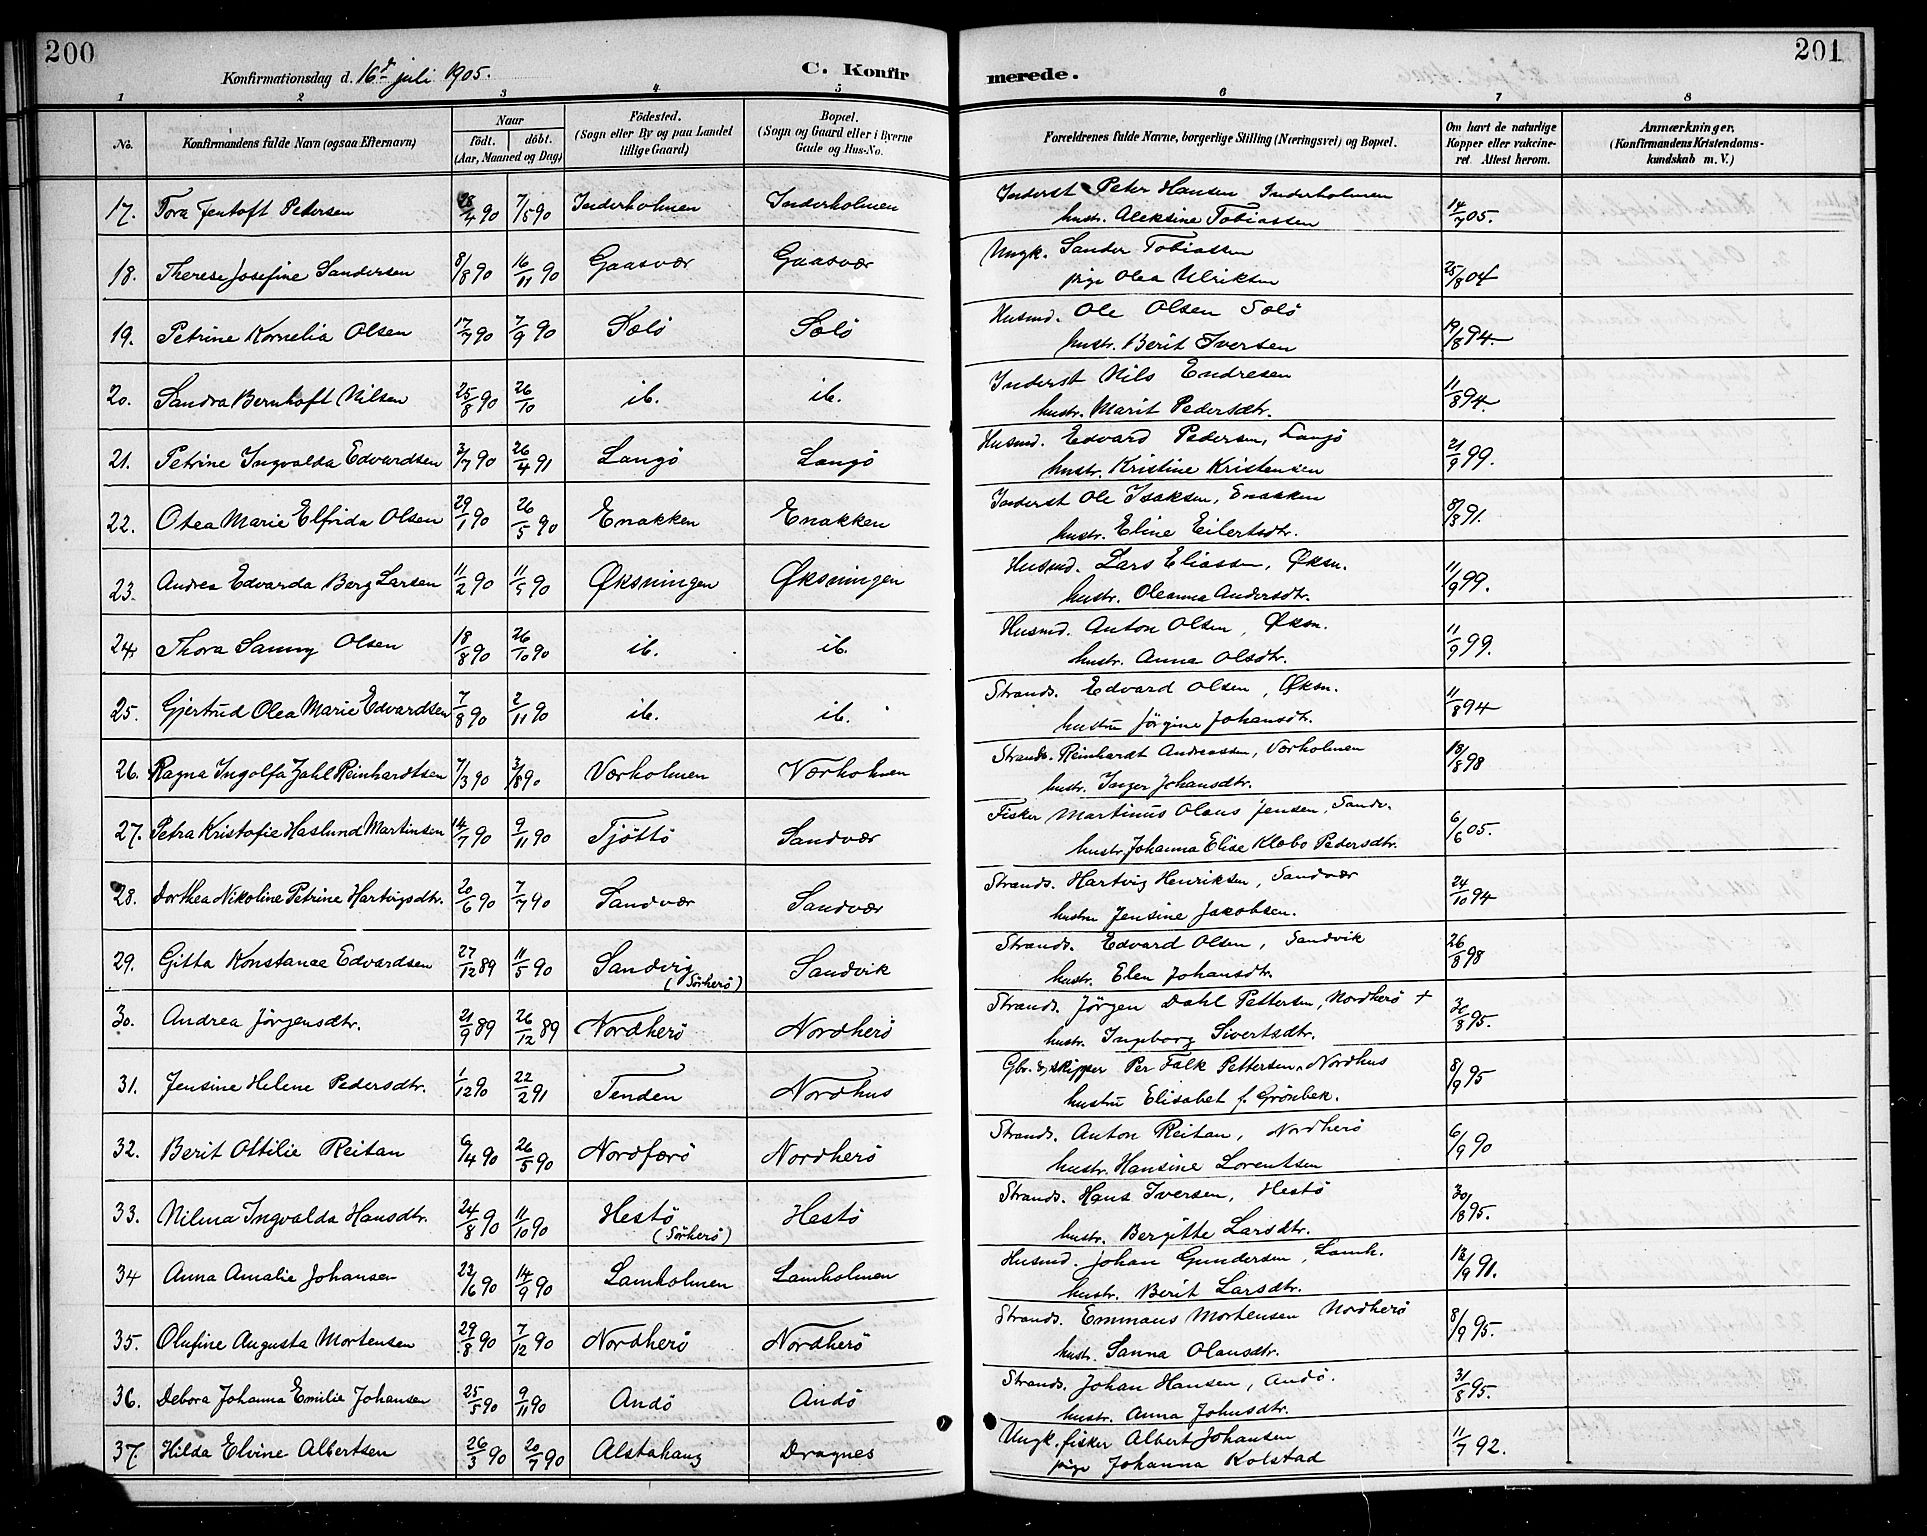 200
201
Konfirmationsdag d. 16d juli 1905.
C. Konfir merede.
1 2 3 4 5 6 7 8
No. Konfirmandens fulde Navn (ogsaa Efternavn) Naar født. døbt. (Aar, Maaned og Dag) Födested. (Sogn eller By og paa Landet tillige Gaard) Bopæl. (Sogn og Gaard eller i Byerne Gade og Hus-No. Forældrenes fulde Navne, borgerlige Stilling (Næringsvei) og Bopæl. Om havt de naturlige Kopper eller vakcineret. Attest herom. Anmærkninger. (Konfirmandens Kristendomskundskab m. V.)
17. Tora Jentoft Pedersen 28/4 90 7/5 90 Inderholmen Inderholmen Inderst Peter Hansen Inderholmen 14/7 05.
hustr. Aleksine Tobiassen
18. Therese Josefine Sandersen 8/8 90 16/11 90 Gaasvær Gaasvær Ungk. Sander Tobiassen 25/8 04
pige Olea Ulriksen
19. Petrine Kornelia Olsen 17/7 90 7/9 90 Sælö Sælö Husmd. Ole Olsen Solö 19/8 94.
hustr. Berit Iversen
20. Sandra Bernhoft Nilsen 25/8 90 26/10 ib. ib. Inderst Nils Endresen 11/8 94.
hustr. Marit Pedersdtr.
21. Petrine Ingvalda Edvardsen 3/7 90 26/4 91 Langö Langö Husmd. Edvard Pedersen, Langö 21/9 99.
hustr. Kristine Kristensen
22. Otea Marie Elfrida Olsen 29/1 90 26/5 90 Enakken Enakken Inderst Ole Isaksen, Enakken 8/8 91.
hustr. Eline Eilertsdtr.
23. Andrea Edvarda Berg Larsen 11/2 90 11/5 90 Øksningen Øksningen Husmd. Lars Eliassen, Øksn. 11/9 99.
hustr. Oleanna Andersdtr.
24. Thora Sanny Olsen 18/8 90 26/10 90 ib. ib. Husmd. Anton Olsen, Øksn. 11/9 99.
hustr. Anna Olsdtr.
25. Gjertrud Olea Marie Edvardsen 7/8 90 2/11 90 ib. ib. Strands. Edvard Olsen, Øksn. 11/8 94
hustru Jörgine Johansdtr.
26. Ragna Ingolfa Zahl Reinhardtsen 7/3 90 3/8 90 Værholmen Værholmen Strands. Reinhardt Andreassen, Værholmen 18/8 98
hustr. Inger Johansdtr.
27. Petra Kristofie Haslund Martinsen 14/7 90 9/11 90 Tjöttö Sandvær Fisker Martinus Olaus Jensen, Sandv. 6/6 05.
hustr. Johanna Elise Klæbo Pedersdtr.
28. Dorthea Nikoline Petrine Hartvigsdtr. 20/6 90 7/7 90 Sandvær Sandvær Strands. Hartvig Henriksen, Sandvær 24/10 94
hustru Jensine Jakobsen.
29. Gitta Konstanse Edvardsen 27/12 89 11/5 90 Sandvig (Sörherö) Sandvik Strands. Edvard Olsen, Sandvik 26/8 98
hustr. Elen Johansdtr.
30. Andrea Jörgensdtr. 21/9 89 26/12 89 Nordherö Nordherö Strands. Jörgen Dahl Pettersen, Nordherö + 30/8 95.
hustr. Ingeborg Sivertsdtr.
31. Jensine Helene Pedersdtr. 1/12 90 22/2 91 Tenden Nordhus Gbr. & skipper Per Falk Pettersen, Nordhus 8/9 95
hustru Elisabet f. Grönbek.
32. Berit Ottilie Reitan 6/4 90 26/5 90 Nordherö Nordherö Strands. Anton Reitan, Nordherö 6/9 90
hustr. Hansine Lorentsen
33. Nilma Ingvalda Hansdtr. 24/8 90 11/10 90 Hestö (Sörherö) Hestö Strands. Hans Iversen, Hestö 30/8 95.
hustr. Bergitte Larsdtr.
34 Anna Amalie Johansen 22/6 90 14/9 90 Lamholmen Lamholmen Husmd. Johan Gundersen, Lamh. 18/9 91.
hustr. Berit Larsdtr.
35. Olufine Augusta Mortensen 29/8 90 7/12 90 Nordherö Nordherö Strands. Emmaus Mortensen Nordherö 8/9 95.
hustr. Sanna Olausdtr.
36. Debora Johanna Emilie Johansen 25/5 90 9/11 90 Andö Andö Strands. Johan Hansen, Andö. 31/8 95.
hustr. Anna Johnsdtr.
37. Hilda Elvine Albertsen 26/3 90 20/7 90 Alstahaug Dragnes Ungk. fisker Albert Johansen 11/7 92.
pige Johanna Kolstad